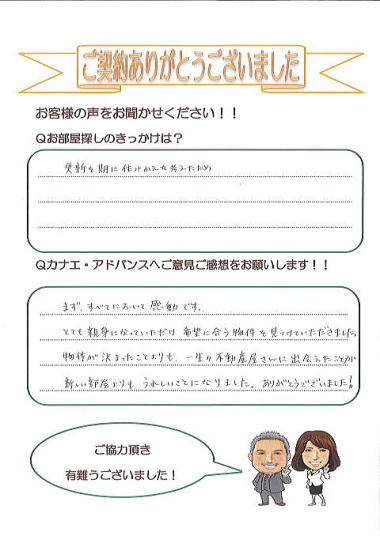 ご契約ありがとうございました
お客様の声をお聞かせください！！
Ｑお部屋探しのきっかけは？
更新を期に住みかえを考えたため
Ｑカナエ・アドバンスへご意見ご感想をお願いします！！
まず、すべてにおいて感動です。
とても親身になっていただけ 希望に合う物件を見つけていただきました。
物件が決まったことよりも、一生の不動産屋さんに出会えたことが
新しい部屋よりもうれしいことになりました。ありがとうございました！
ご協力頂き
有難うございました！